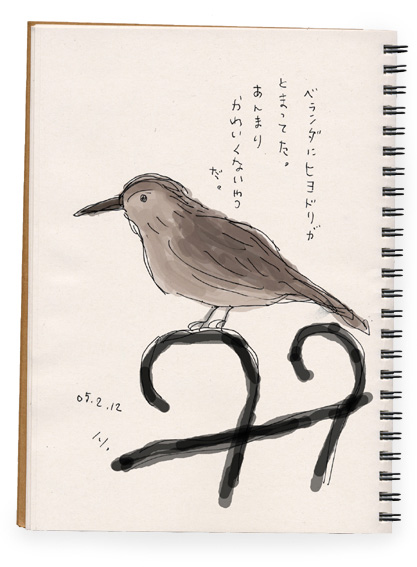 ベランダにヒヨドリが
とまってた。
あんまり
かわいくないやつ
だ。
05.2.12